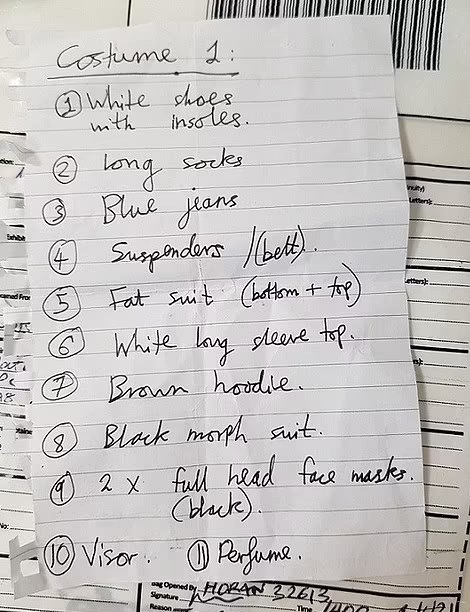 Costume 1:
① White shoes
with insoles.
② Long socks
③ Blue jeans
④ Suspenders / (belt).
⑤ Fat suit (bottom + top)
⑥ White long sleeve top.
⑦ Brown hoodie.
⑧ Black morph suit.
⑨ 2 x full head face masks.
(black).
⑩ Visor. ⑪ Perfume.
Bag Opened By HORAN 32613
Signature
Reason
Time
Exhibit
No: